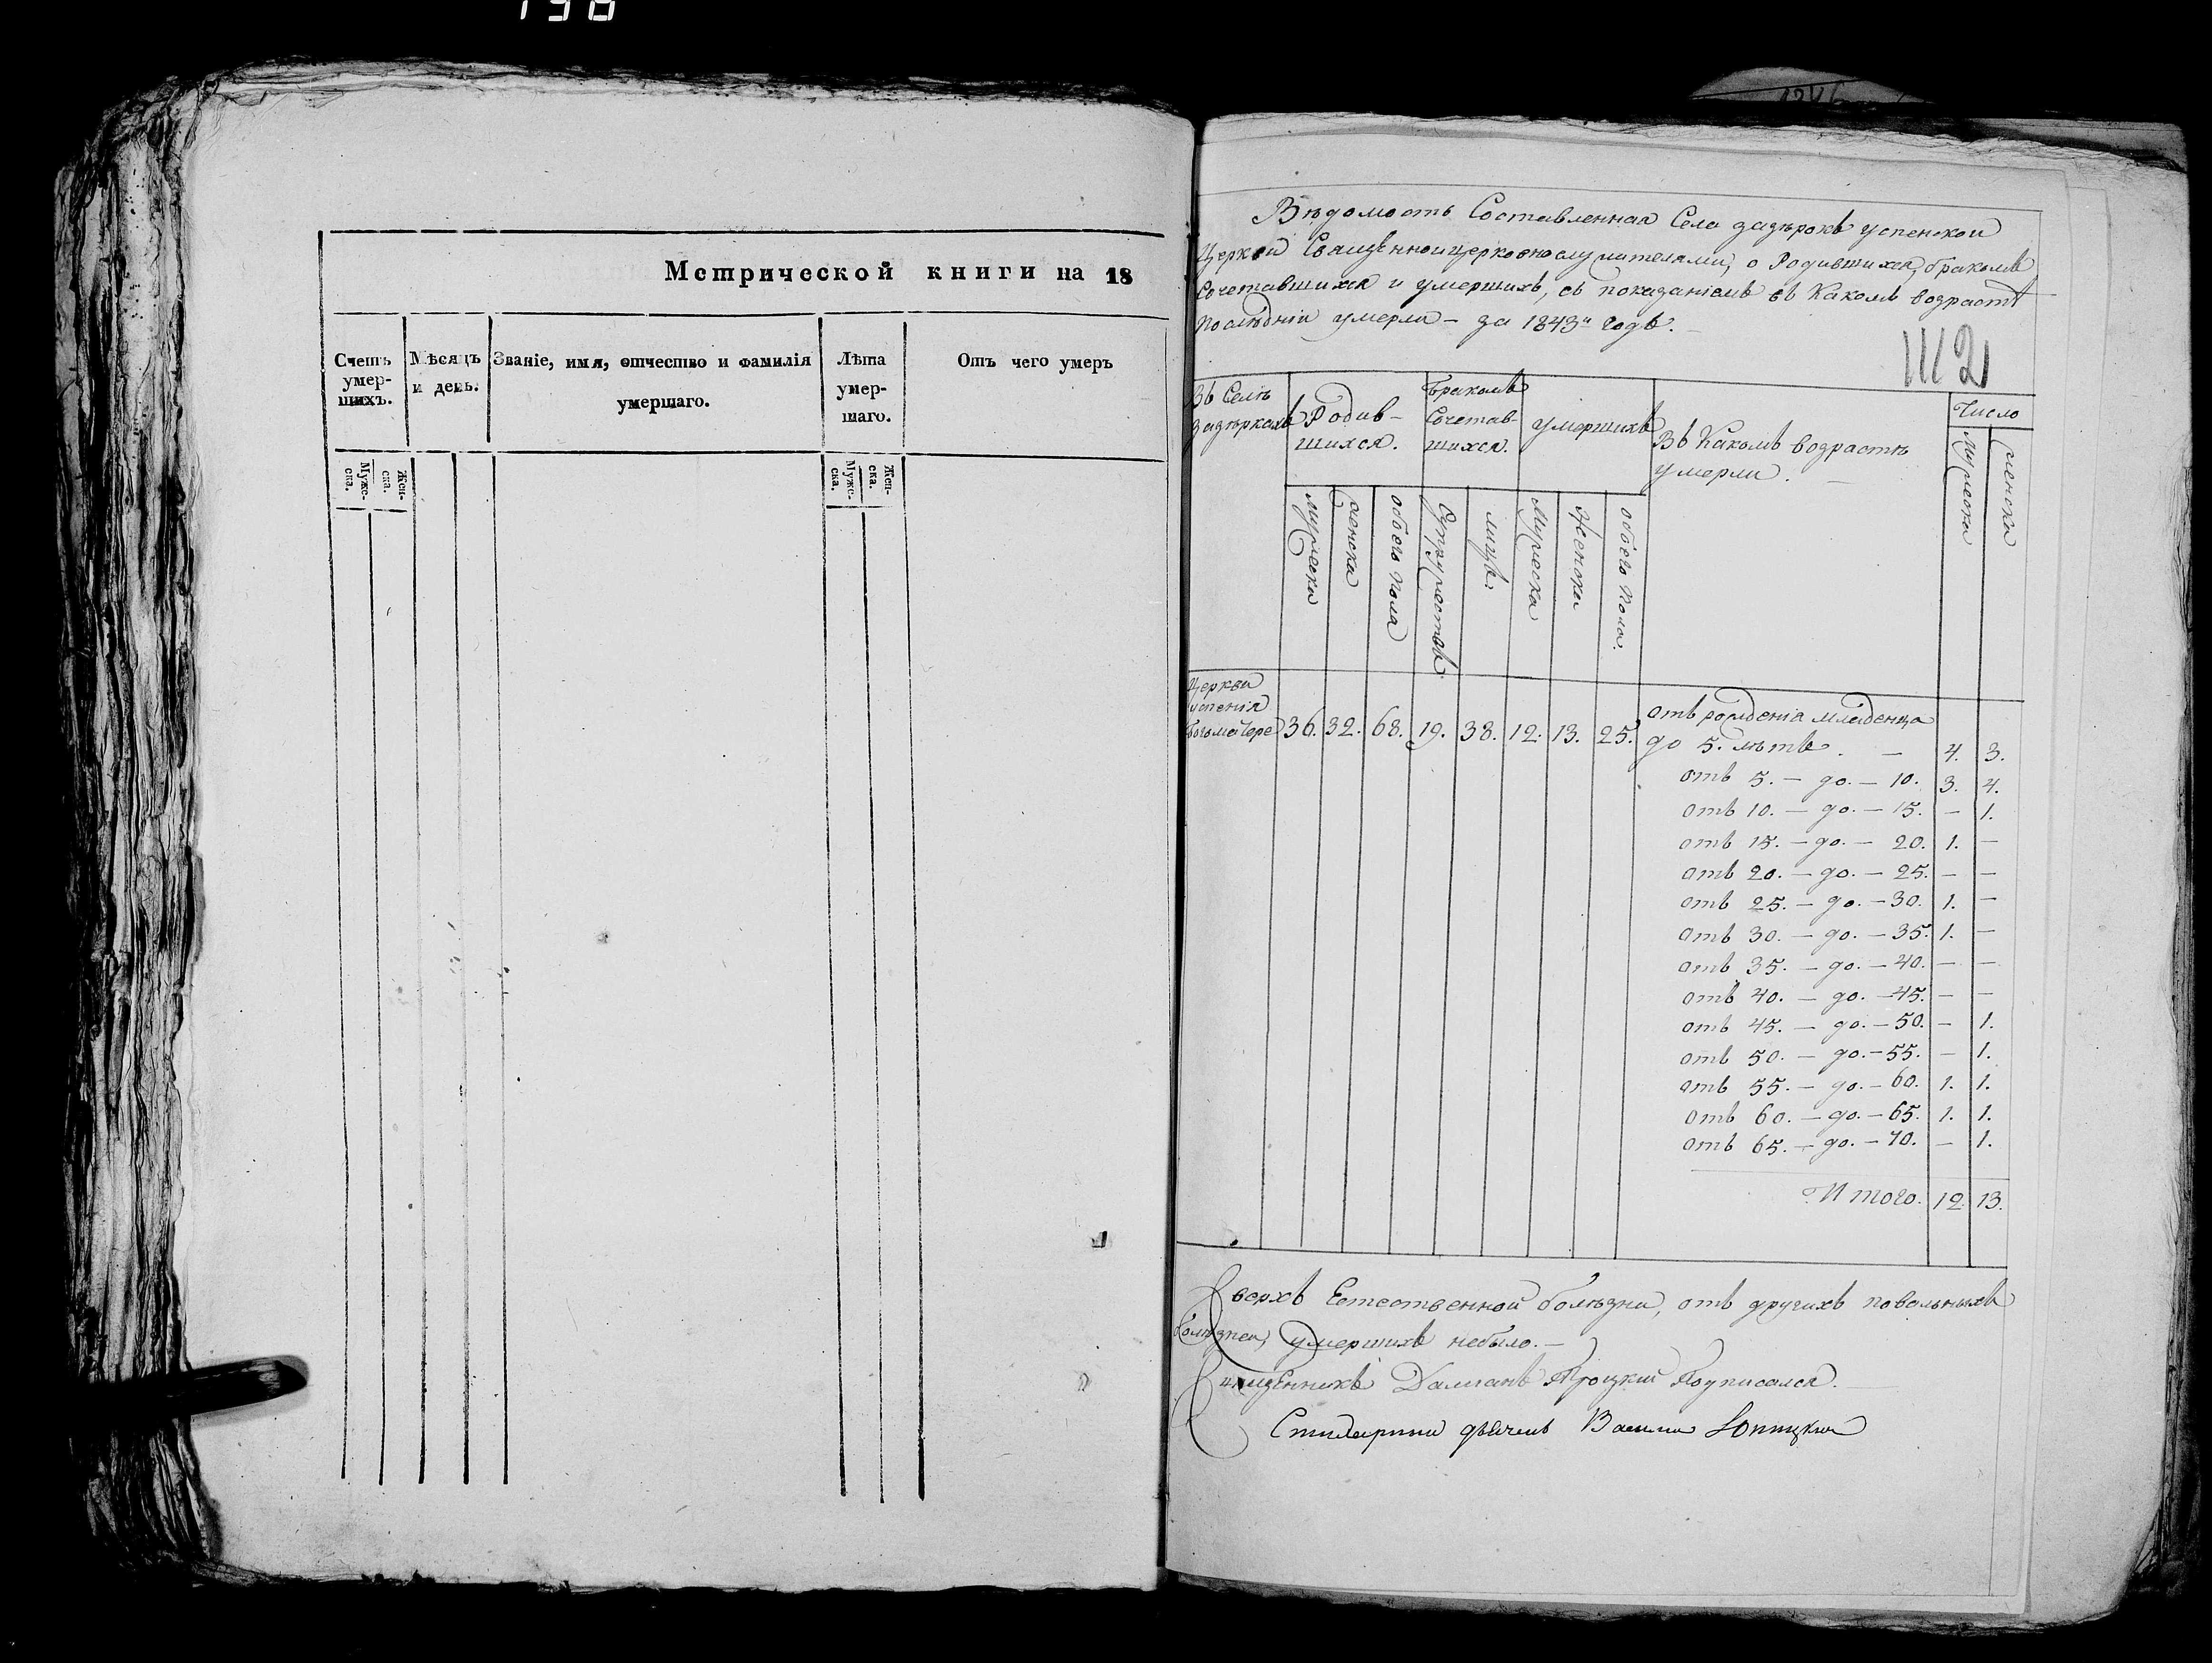 Метрической книги на 18
Счетъ умер-шихъ.
Мѣсяцъ и день.
Званіе, имя, отчество и фамилія умершаго.
Лѣта умер-шаго.
Отъ чего умеръ
Мужс-ска.
Жен-ска.
Мужс-ска.
Жен-ска.
Вѣдомость Составленная Села задѣрокъ успенской
Церкви Священноицерковнослужителями, о Родившихся, бракомъ
Сочетавшихся и умершихъ, съ показаніемъ въ Какомъ возрастѣ
послѣдніи умерли — за 1843й годъ. —
1112
Въ Селѣ задѣркахъ
Родив-шихся.
Бракомъ Сочетав-шихся.
умершихъ
Въ Какомъ возрастѣ умерли. —
Число
мужеска
женска
обоего пола
Супружествъ
лицъ
Мужеска
Женска
обоего пола.
мужеска
женска
Церкви
успенія
36. 32. 68. 19. 38. 12. 13. 25.
отъ рожденія младенца
до 5. лѣтъ. — 4. 3.
отъ 5. — до. — 10. 3. 4.
отъ 10. — до. — 15. — 1.
отъ 15. — до. — 20. 1. —
отъ 20. — до. — 25. — —
отъ 25. — до. — 30. 1. —
отъ 30. — до. — 35. 1. —
отъ 35. — до. — 40. — —
отъ 40. — до. — 45. — —
отъ 45. — до. — 50. — 1.
отъ 50. — до. — 55. — 1.
отъ 55. — до. — 60. 1. 1.
отъ 60. — до. — 65. 1. 1.
отъ 65. — до. — 70. — 1.
Итого. 12. 13.
Сверхъ Естественной болѣзни, отъ другихъ повальныхъ
болѣзней, умершихъ небыло. —
Священникъ Даміанъ Троцкій Подписался.